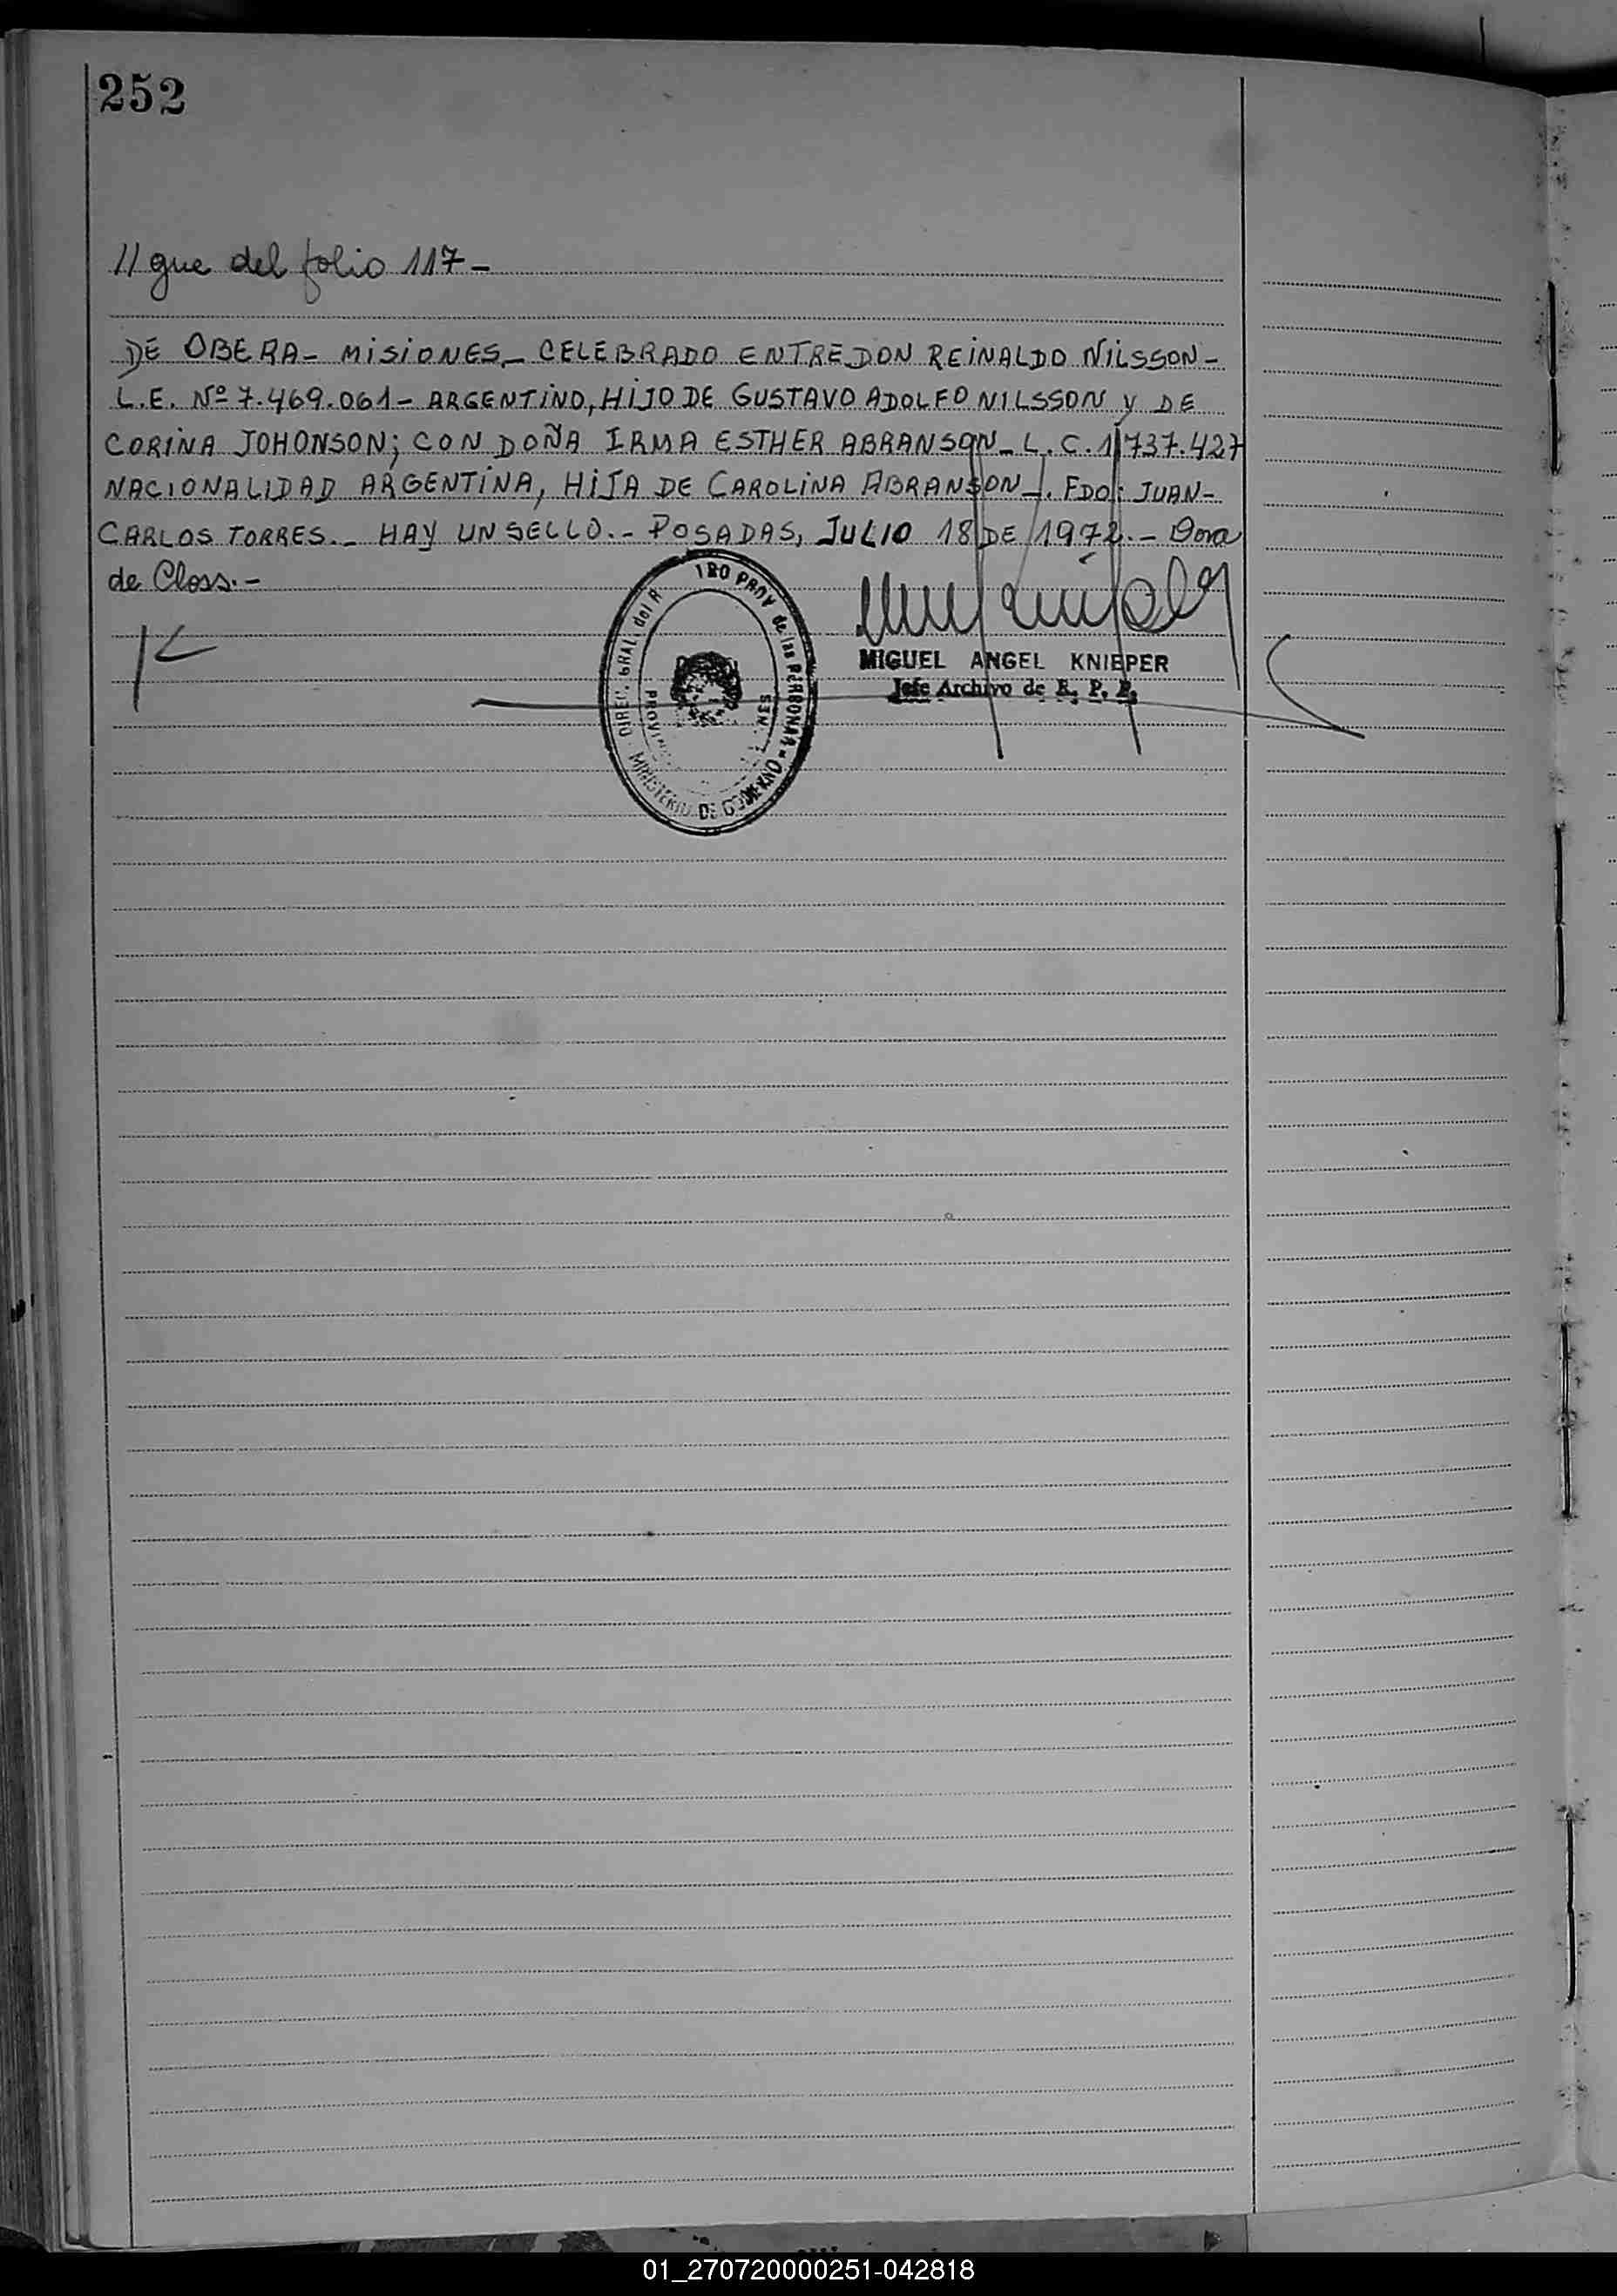 252
//gue del folio 117-
DE OBERA- MISIONES.- CELEBRADO ENTRE DON REINALDO NILSSON-
L.E. Nº 7.469.061- ARGENTINO, HIJO DE GUSTAVO ADOLFO NILSSON Y DE
CORINA JOHONSON; CON DOÑA IRMA ESTHER ABRANSON- L.C. 1.737.427
NACIONALIDAD ARGENTINA, HIJA DE CAROLINA ABRANSON-. FDO: JUAN-
CARLOS TORRES.- HAY UN SELLO.- POSADAS, JULIO 18 DE 1972.- Dora
de Closs.-
DIREC. GRAL. del R
PROV. de las PERSONAS
MINISTERIO DE GOBIERNO
MIGUEL ANGEL KNIEPER
Jefe Archivo de R. P. P.
01_270720000251-042818